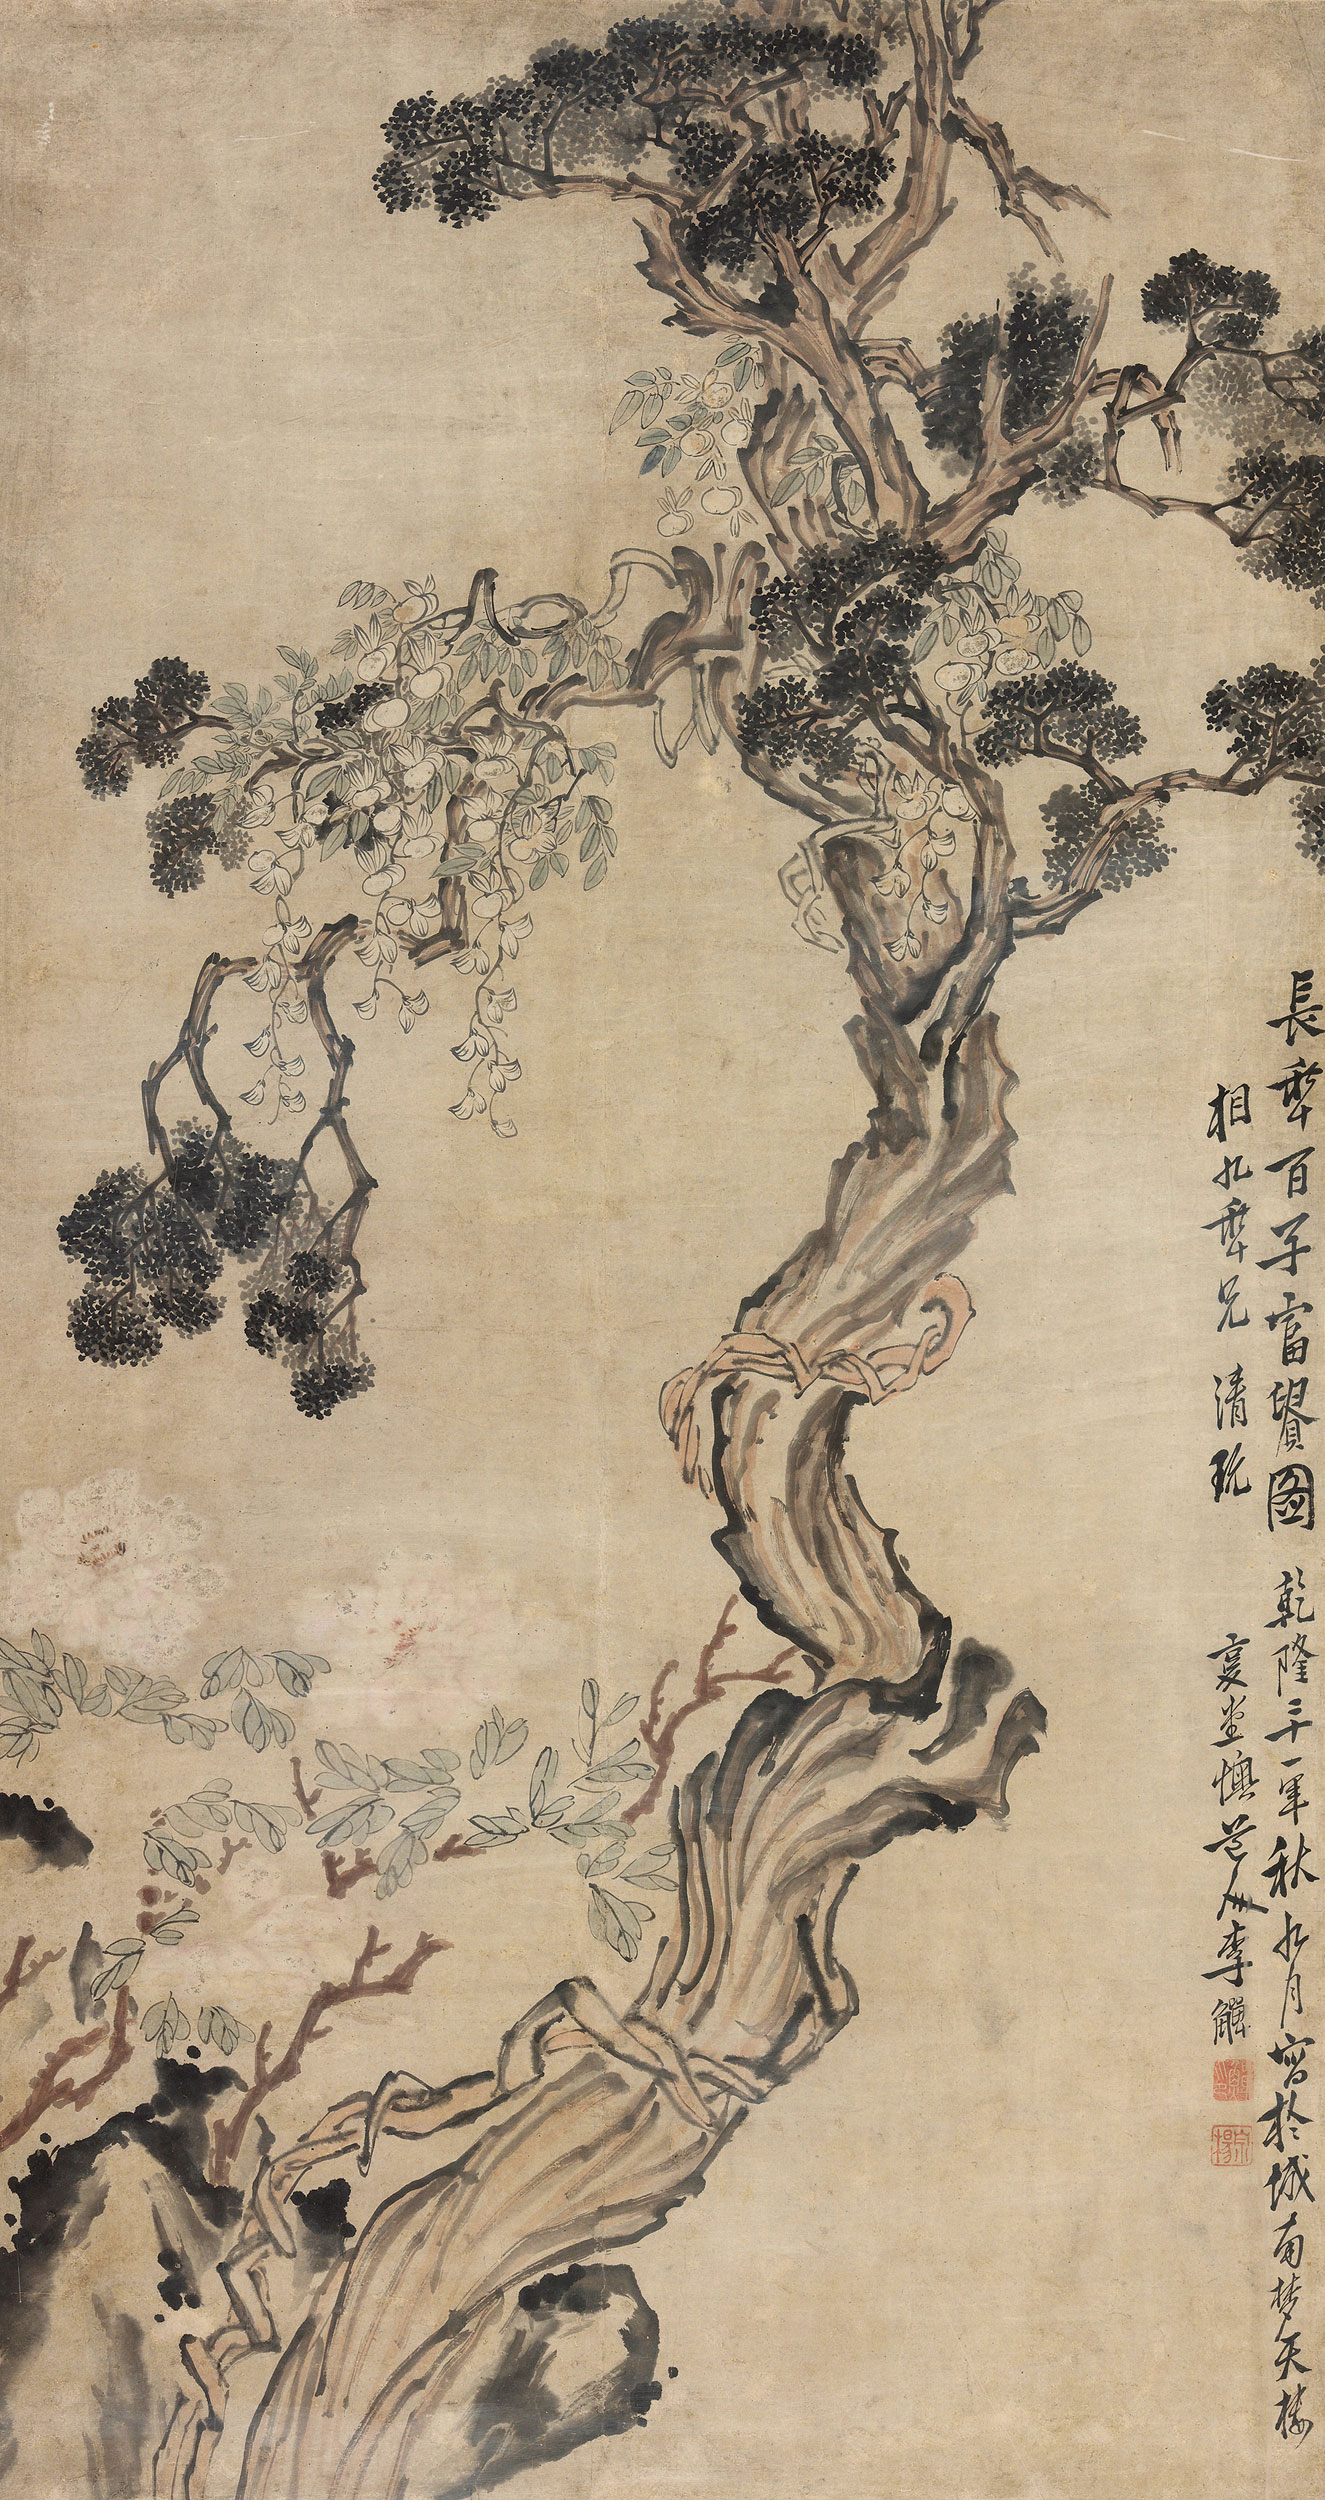 長年百子富貴圖 乾隆二十一年秋九月寫於城南梦天樓
相九年兄 清玩 复堂懊道人李觶
宗揚